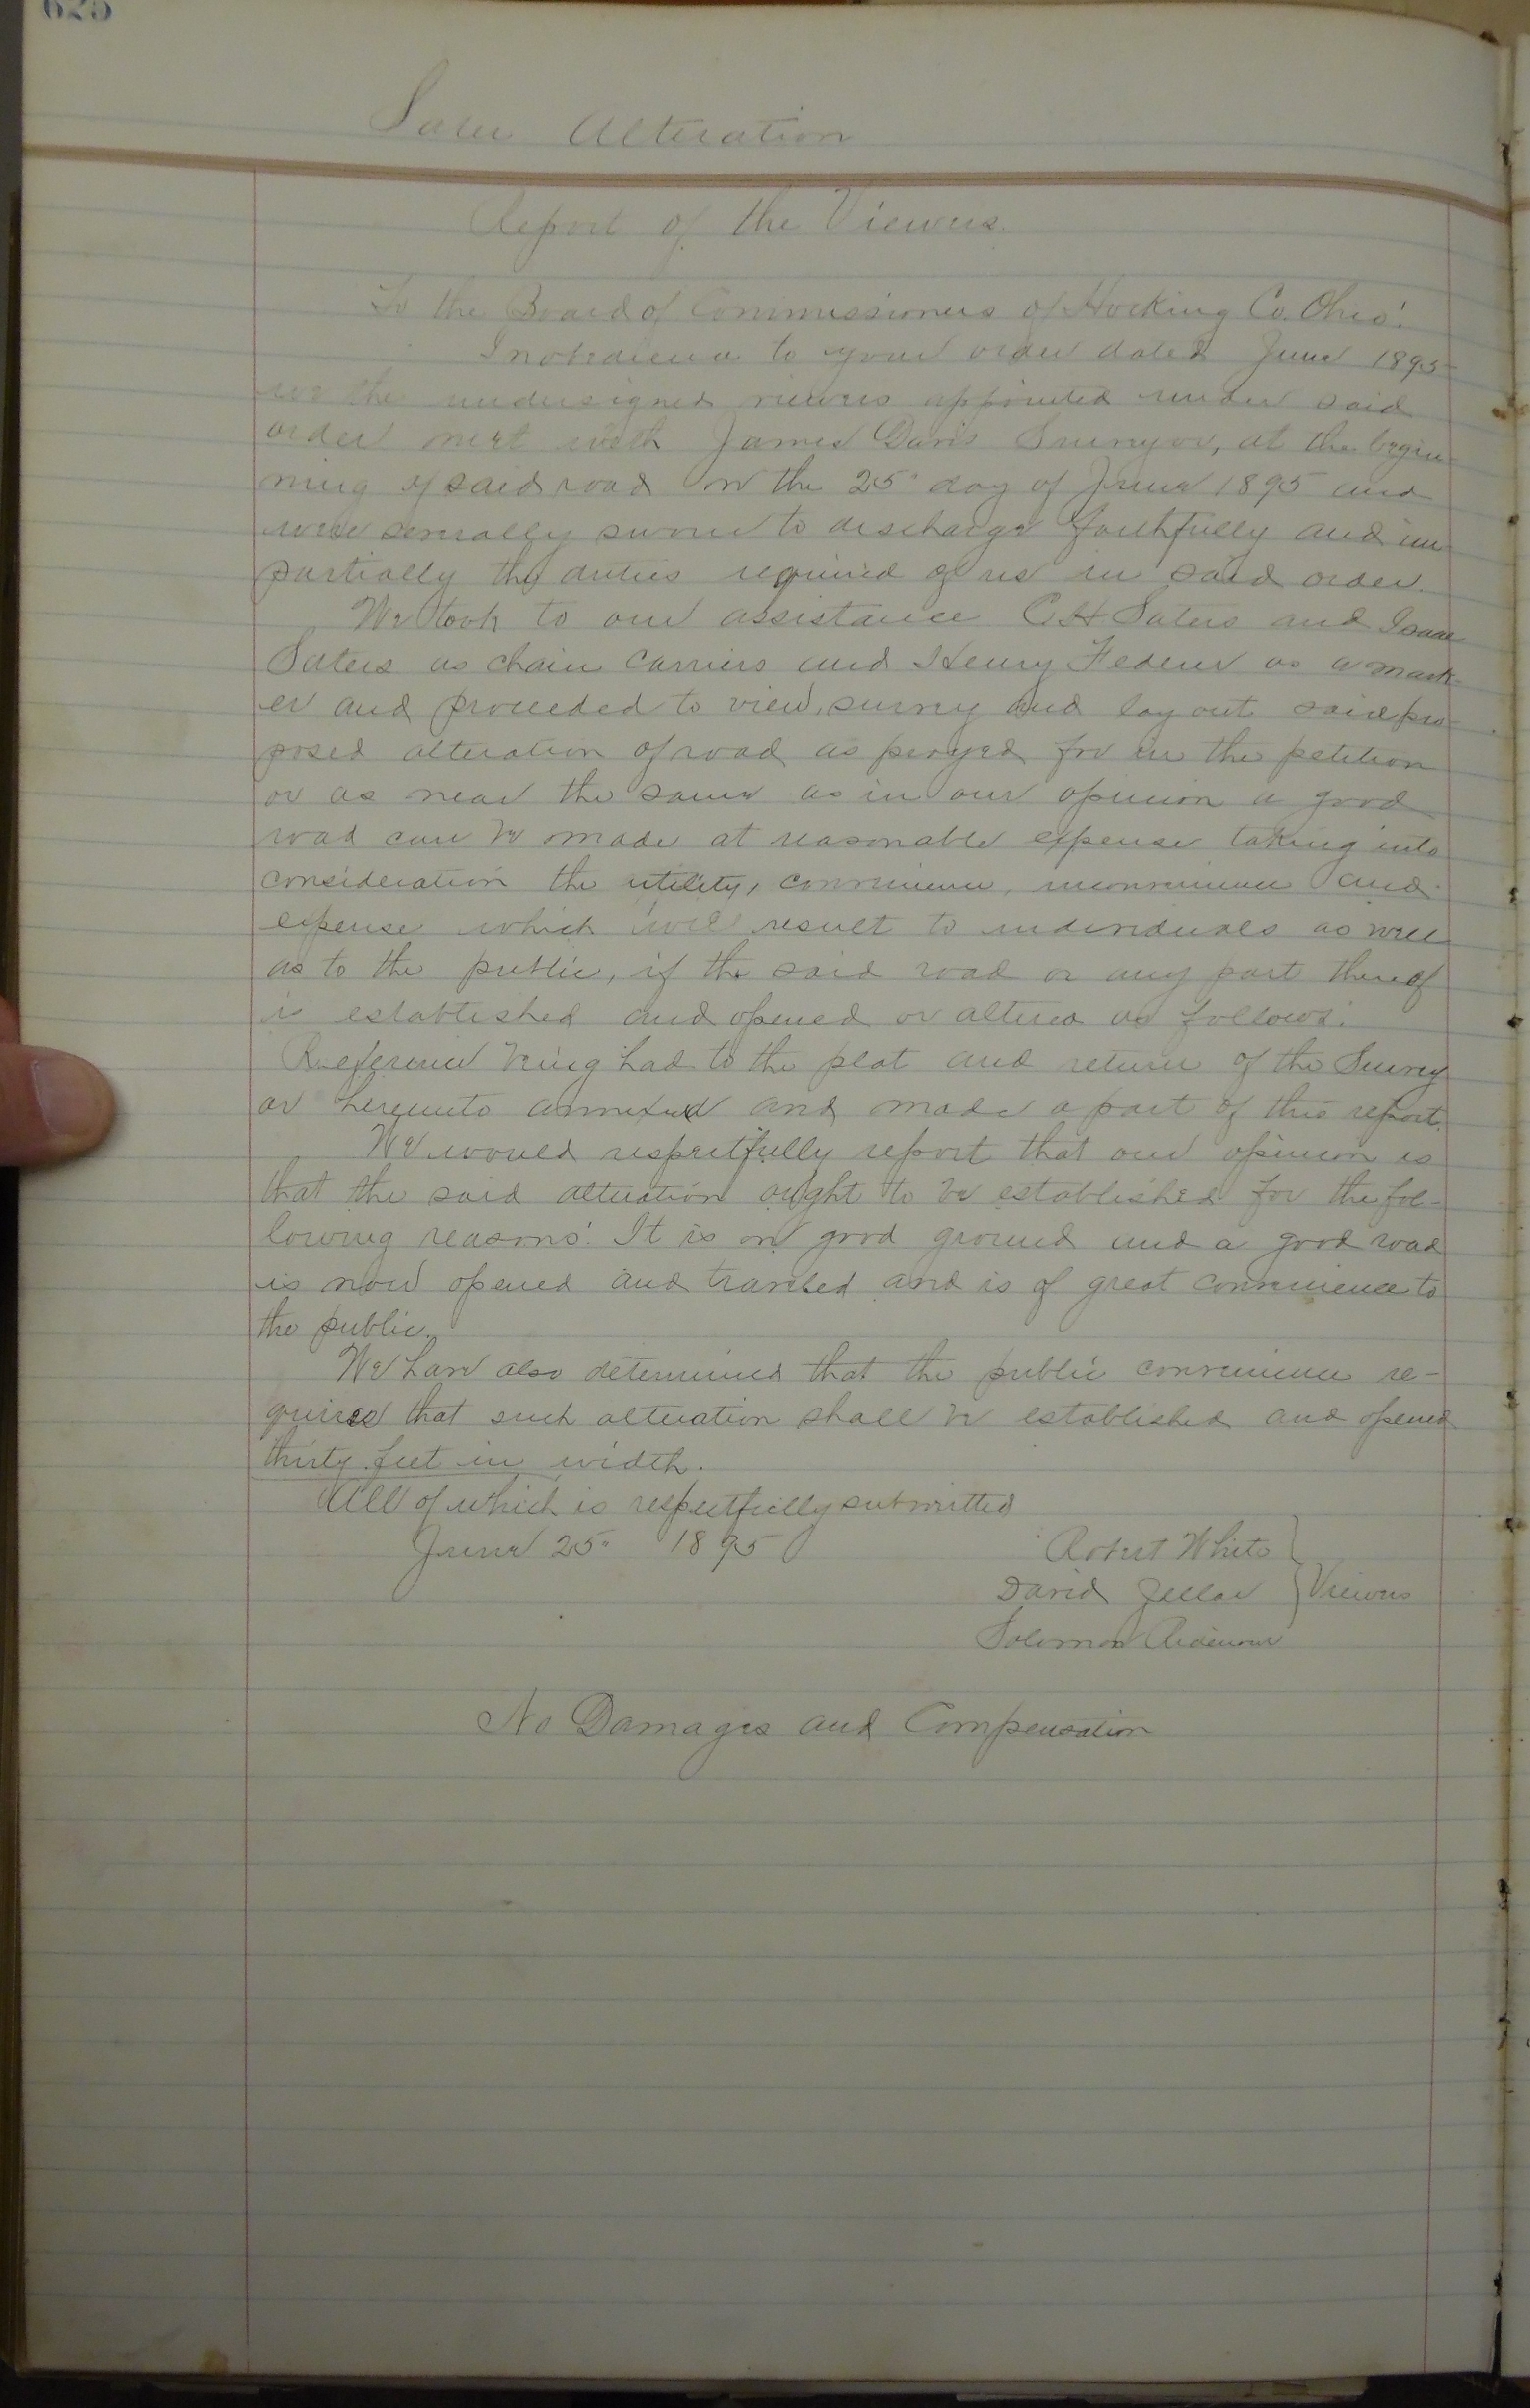 625
Sater Alteration
Report of the Viewers.
To the Board of Commissioners of Hocking Co. Ohio:
In obedience to your order dated June 1895
we the undersigned viewers appointed under said
order met with James Davis Surveyor, at the begin-
ning of said road on the 25" day of June 1895 and
were severally sworn to discharge faithfully and im-
partially the duties required of us in said order.
We took to our assistance C H Saters and Isaac
Saters as chain carriers and Henry Federer as a mark-
er and proceeded to view, survey and lay out said pro-
posed alteration of road as prayed for in the petition
or as near the same as in our opinion a good
road can be made at reasonable expense taking into
consideration the utility, convenience, inconvenience and
expense which will result to individuals as well
as to the public, if the said road or any part thereof
is established and opened or altered as follows:
Reference being had to the plat and return of the Survey
or hereunto annexed and made a part of this report.
We would respectfully report that our opinion is
that the said alteration ought to be established for the fol-
lowing reasons: It is on good ground and a good road
is now opened and traveled and is of great convenience to
the public.
We have also determined that the public convenience re-
quires that such alteration shall be established and opened
thirty feet in width.
All of which is respectfully submitted
June 25" 1895
Robert White }
David Zellar } Viewers
Solomon Ridenour
No Damages and Compensation